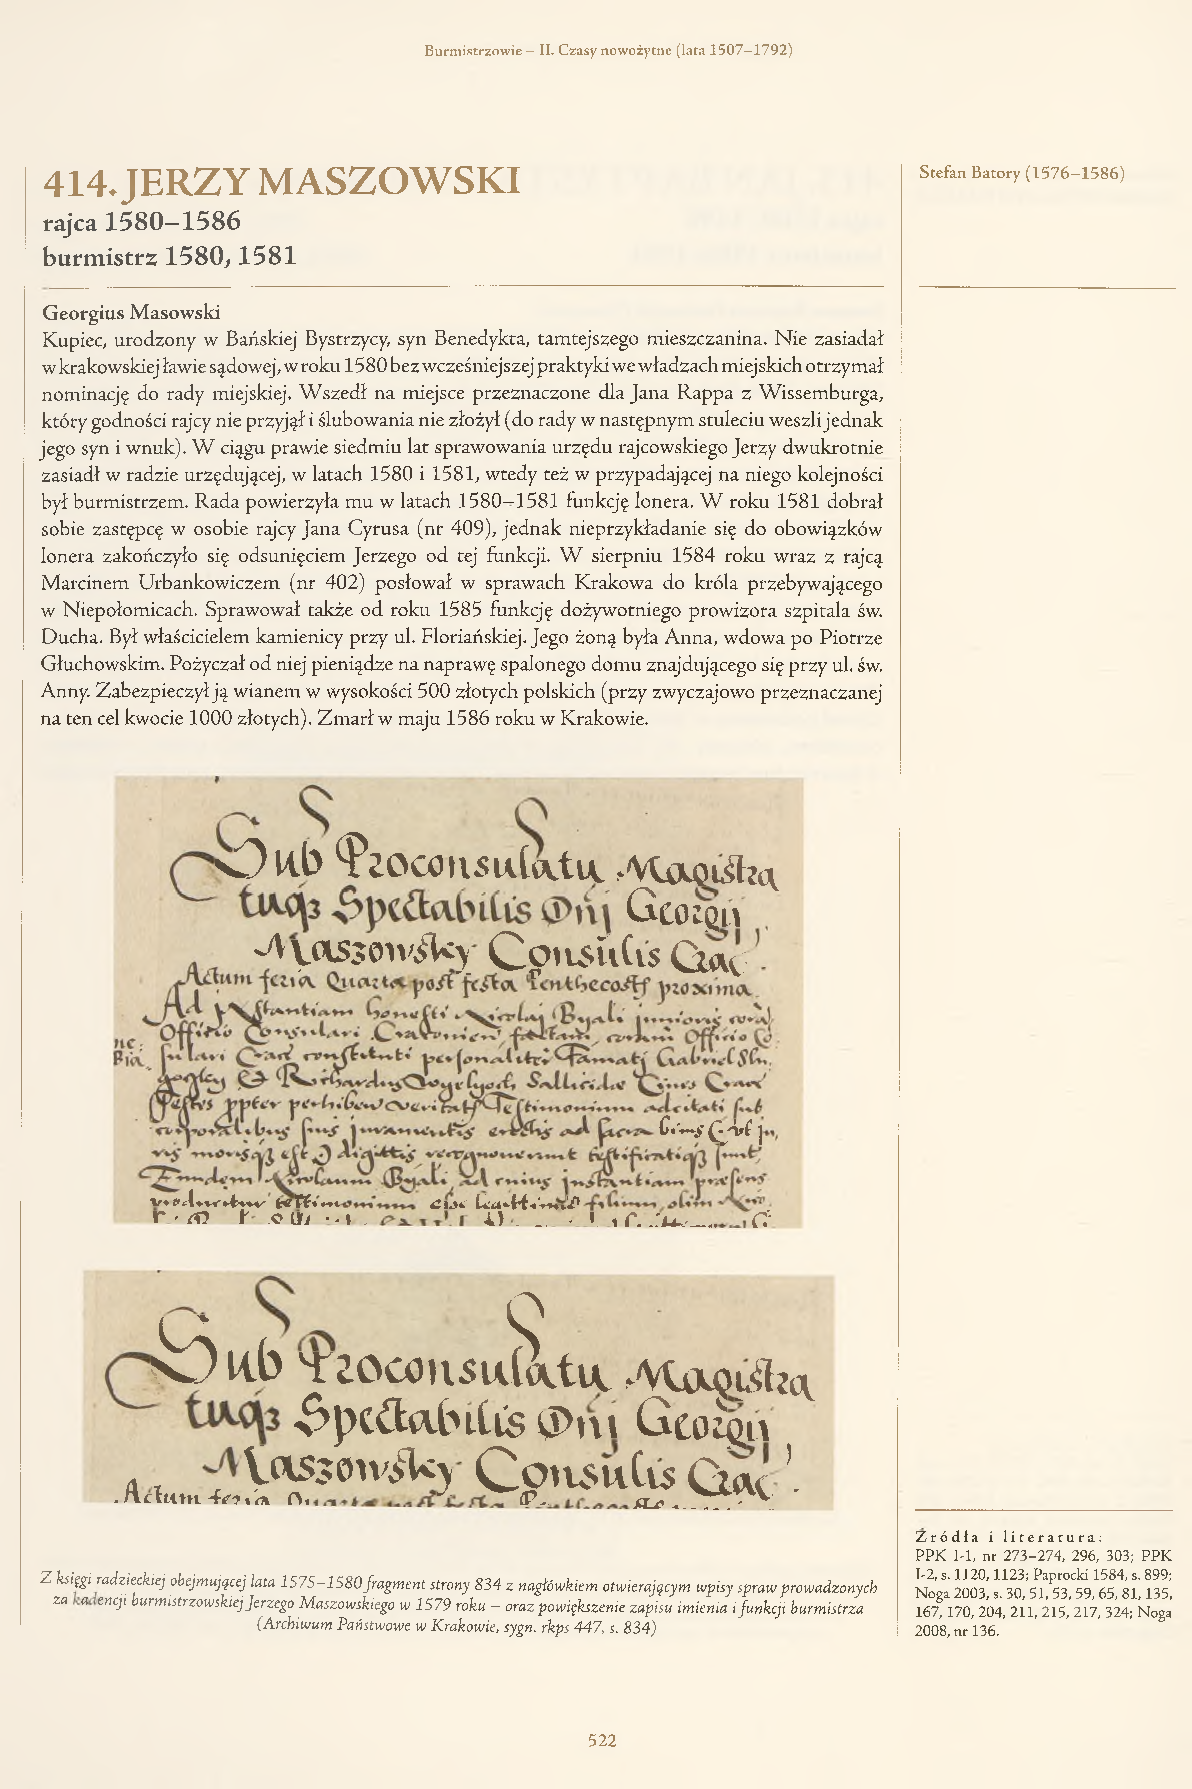 Burmistrzowie – II. Czasy nowożytne (lata 1507–1792)
414. JERZY MASZOWSKI
rajca 1580–1586
burmistrz 1580, 1581
Stefan Batory (1576–1586)
Georgius Masowski
Kupiec, urodzony w Bańskiej Bystrzycy, syn Benedykta, tamtejszego mieszczanina. Nie zasiadał
w krakowskiej ławie sądowej, w roku 1580 bez wcześniejszej praktyki we władzach miejskich otrzymał
nominację do rady miejskiej. Wszedł na miejsce przeznaczone dla Jana Rappa z Wissemburga,
który godności rajcy nie przyjął i ślubowania nie złożył (do rady w następnym stuleciu weszli jednak
jego syn i wnuk). W ciągu prawie siedmiu lat sprawowania urzędu rajcowskiego Jerzy dwukrotnie
zasiadł w radzie urzędującej, w latach 1580 i 1581, wtedy też w przypadającej na niego kolejności
był burmistrzem. Rada powierzyła mu w latach 1580–1581 funkcję lonera. W roku 1581 dobrał
sobie zastępcę w osobie rajcy Jana Cyrusa (nr 409), jednak nieprzykładanie się do obowiązków
lonera zakończyło się odsunięciem Jerzego od tej funkcji. W sierpniu 1584 roku wraz z rajcą
Marcinem Urbankowiczem (nr 402) posłował w sprawach Krakowa do króla przebywającego
w Niepołomicach. Sprawował także od roku 1585 funkcję dożywotniego prowizora szpitala św.
Ducha. Był właścicielem kamienicy przy ul. Floriańskiej. Jego żoną była Anna, wdowa po Piotrze
Głuchowskim. Pożyczał od niej pieniądze na naprawę spalonego domu znajdującego się przy ul. św.
Anny. Zabezpieczył ją wianem w wysokości 500 złotych polskich (przy zwyczajowo przeznaczanej
na ten cel kwocie 1000 złotych). Zmarł w maju 1586 roku w Krakowie.
Sub Proconsulatu Magistra
tuqз Spectabilis Dnj Georgij
Maszowsky Consulis Crac.
Actum feria Quarta post festa Penthecost proxima
Ad Instantiam honesti Nicolaj Byali junioris
Officio Consulari factam, coram Officio
sulari Crac constituti personaliter Famati Gabriel
Testes perhibere
ad sacra
recognouerunt
Eundem Nicolaum Byali, ad cuius instantiam præsens
producitur testimonium esse filium, olim
Sub Proconsulatu Magistra
tuqз Spectabilis Dnj Georgij
Maszowsky Consulis Crac.
Actum feria Quarta post festa
Z księgi radzieckiej obejmującej lata 1575–1580 fragment strony 834 z nagłówkiem otwierającym wpisy spraw prowadzonych
za kadencji burmistrzowskiej Jerzego Maszowskiego w 1579 roku – oraz powiększenie zapisu imienia i funkcji burmistrza
(Archiwum Państwowe w Krakowie, sygn. rkps 447, s. 834)
Źródła i literatura:
PPK I-1, nr 273–274, 296, 303; PPK
I-2, s. 1120, 1123; Paprocki 1584, s. 899;
Noga 2003, s. 30, 51, 53, 59, 65, 81, 135,
167, 170, 204, 211, 215, 217, 324; Noga
2008, nr 136.
522